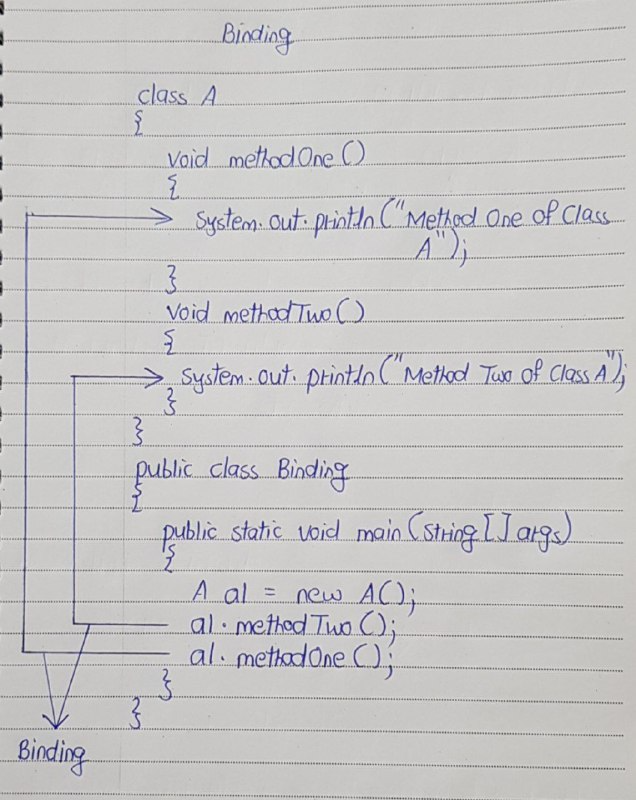 Binding
class A
{
void methodOne()
{
System.out.println("Method One of Class
A");
}
void methodTwo()
{
System.out.println("Method Two of Class A");
}
}
public class Binding
{
public static void main(String[] args)
{
A a1 = new A();
a1.methodTwo();
a1.methodOne();
}
}
Binding